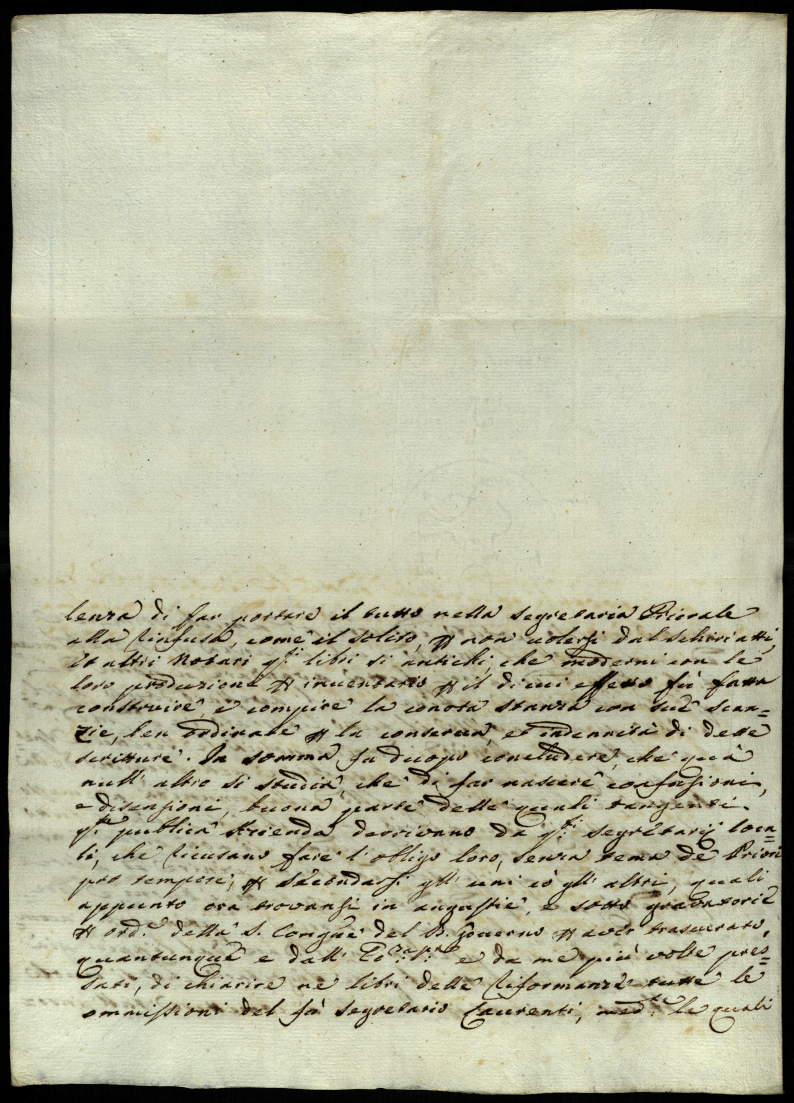 lenza di far portare il tutto nella Segretaria Priorale
alla rinfusa, come il solito, p non volersi dal
et altri Notari q.ti libri sì antichi, che moderni con le
loro produzione p inventario p il di cui effetto fù fatta
construire e compire la conota stanza con sue scan=
zie, ben ordinate p la conserva, et indennità di dette
scritture. In somma fa duopo concludere, che quà
null' altro si studia, che di far nascere confusioni,
e disensioni, buona parte delle quali tangenti
q.ta publica Azienda derivano da q.ti segretarij loca=
li, che ricusano fare l'obligo loro, senza tema de Priori
pro tempore, p secondarsi gl' uni cò gl' altri, quali
appunto ora trovansi in angustie, e sotto gravatorie
p ord.e della S. Congñe del B. Governo p aver trascurato,
quantunque e dall' e da me più volte pres=
sati, di chiarire ne libri delle Riformanze tutte le
ommissioni del fù Segretario Laurenti, med.te le quali